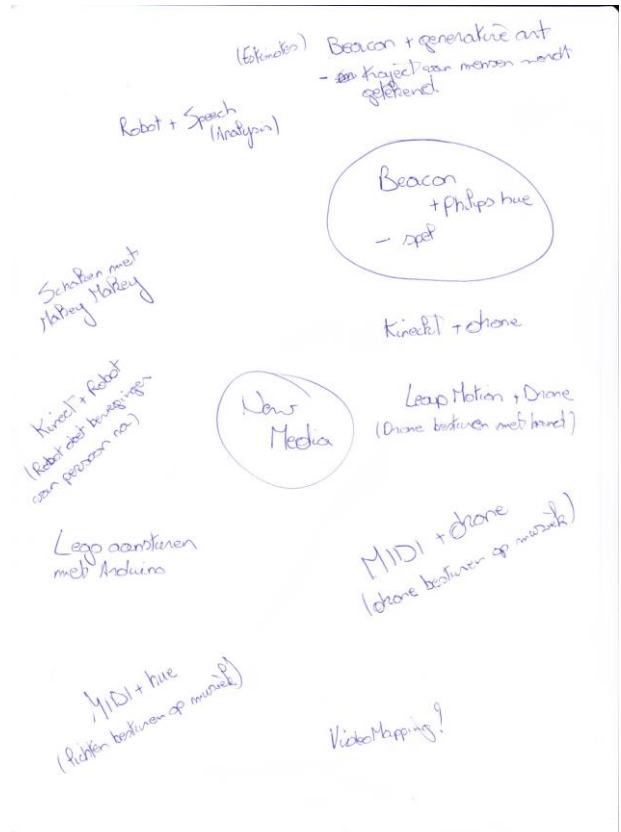 (Estimotes)
Beacon + generative art
- traject van mensen wordt
getekend.
Robot + Speech
(Analysis)
Beacon
+ Philips hue
- spel
Schaken met
Makey Makey
Kineckt + drone
Kinect + Robot
(Robot doet bewegingen
van persoon na)
New
Media
Leap Motion + Drone
(Drone besturen met hand)
Lego aansturen
met Arduino
MIDI + drone
(drone besturen op muziek)
MIDI + hue
(lichten besturen op muziek)
Video Mapping!